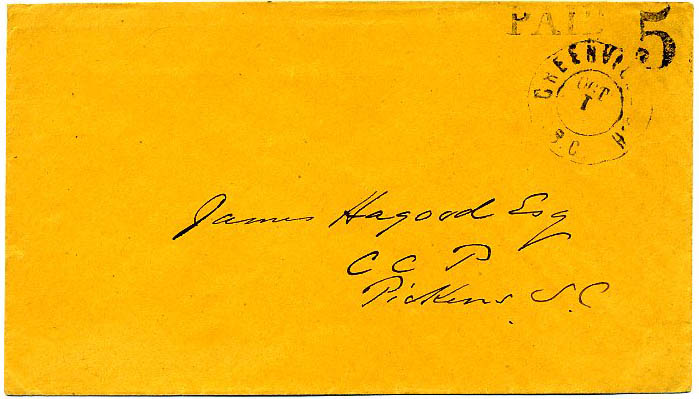 PAID 5
GREENVILLE C.H.
OCT
1
S.C.
James Hagood Esq
C C P
Pickens, S.C